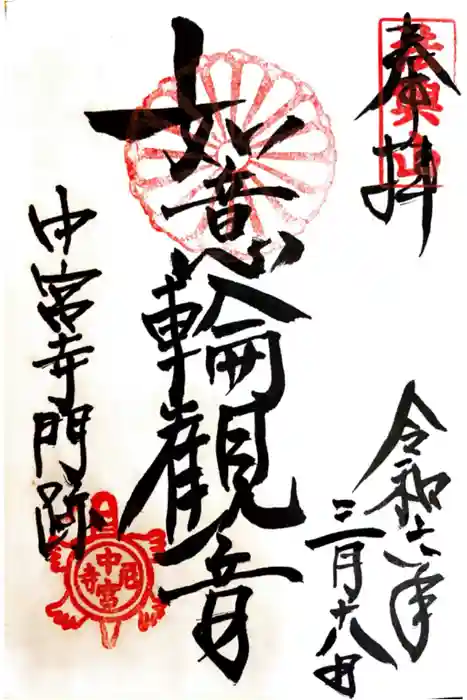 奉拝
令和六年
三月十八日
如意輪觀音
中宮寺門跡
中宮寺